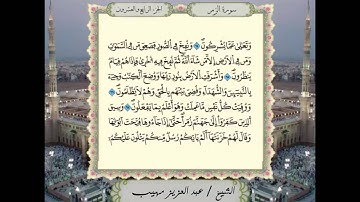 سورة الزمر
الجزء الرابع والعشرون
وَتَعَٰلَىٰ عَمَّا يُشْرِكُونَ ۝ وَنُفِخَ فِي ٱلصُّورِ فَصَعِقَ مَن فِي ٱلسَّمَٰوَٰتِ
وَمَن فِي ٱلْأَرْضِ إِلَّا مَن شَآءَ ٱللَّهُ ثُمَّ نُفِخَ فِيهِ أُخْرَىٰ فَإِذَا هُمْ قِيَامٌ
يَنظُرُونَ ۝ وَأَشْرَقَتِ ٱلْأَرْضُ بِنُورِ رَبِّهَا وَوُضِعَ ٱلْكِتَٰبُ وَجِا۟ىٓءَ
بِٱلنَّبِيِّـۧنَ وَٱلشُّهَدَآءِ وَقُضِيَ بَيْنَهُم بِٱلْحَقِّ وَهُمْ لَا يُظْلَمُونَ ۝
وَوُفِّيَتْ كُلُّ نَفْسٍ مَّا عَمِلَتْ وَهُوَ أَعْلَمُ بِمَا يَفْعَلُونَ ۝ وَسِيقَ
ٱلَّذِينَ كَفَرُوٓا۟ إِلَىٰ جَهَنَّمَ زُمَرًا حَتَّىٰٓ إِذَا جَآءُوهَا فُتِحَتْ أَبْوَٰبُهَا
وَقَالَ لَهُمْ خَزَنَتُهَآ أَلَمْ يَأْتِكُمْ رُسُلٌ مِّنكُمْ يَتْلُونَ عَلَيْكُمْ
الشيخ / عبد العزيز مهيب